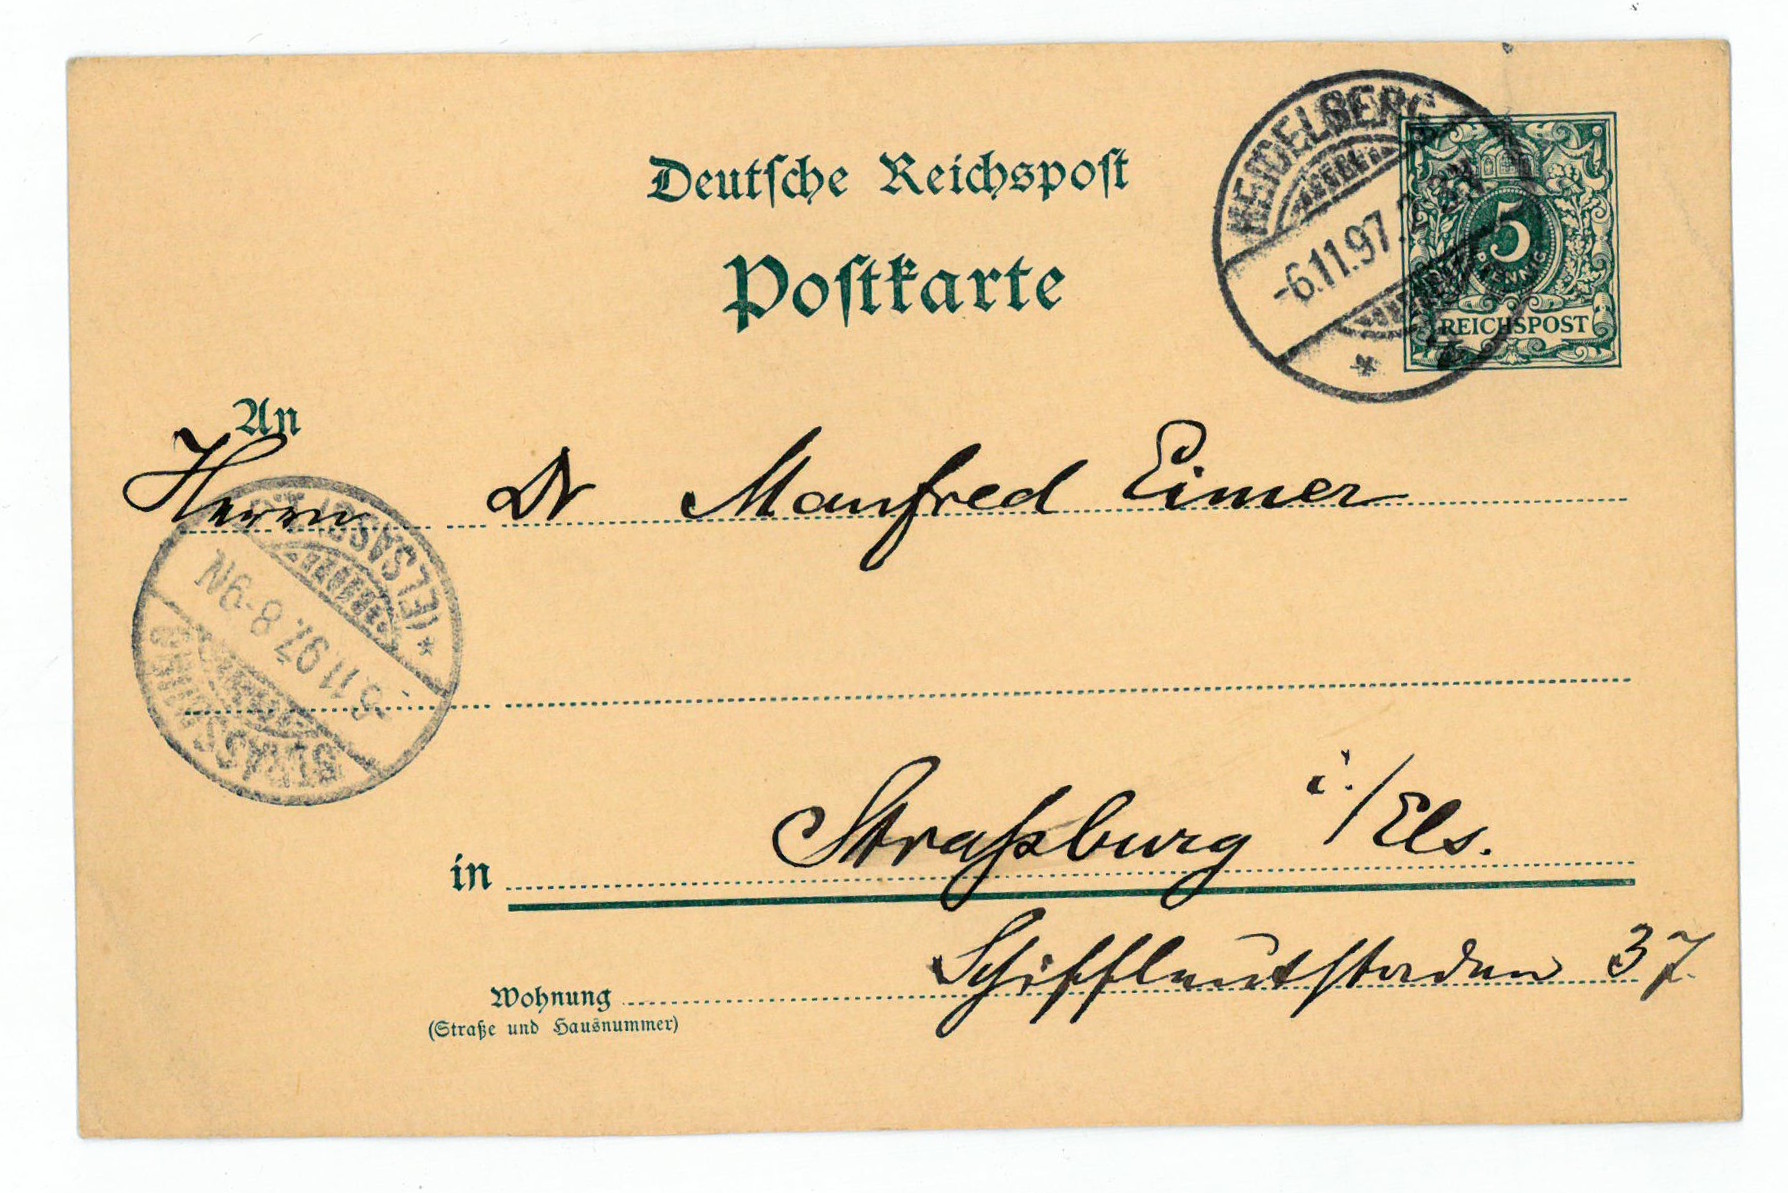 Deutsche Reichspost
Postkarte
HEIDELBERG
-6.11.97.2-3N
5
PFENNIG
REICHSPOST
An
Herrn Dr Manfred Eimer
STRASSBURG
(ELSASS)
-6.11.97. 8-9N
in Straßburg i./Els.
Schiffleutstaden 37
Wohnung
(Straße und Hausnummer)